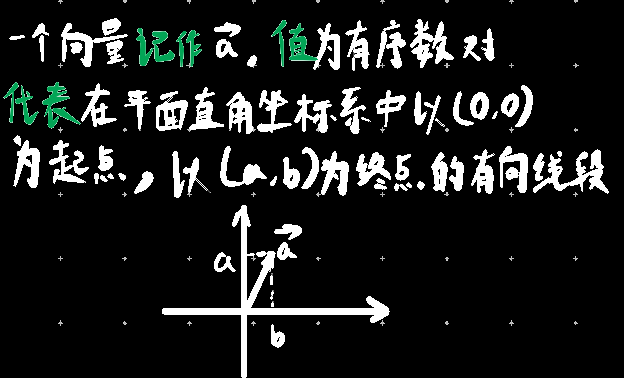 一个向量记作 a⃗，值为有序数对
代表在平面直角坐标系中以(0,0)
为起点，以(a,b)为终点的有向线段
a⃗
a
b